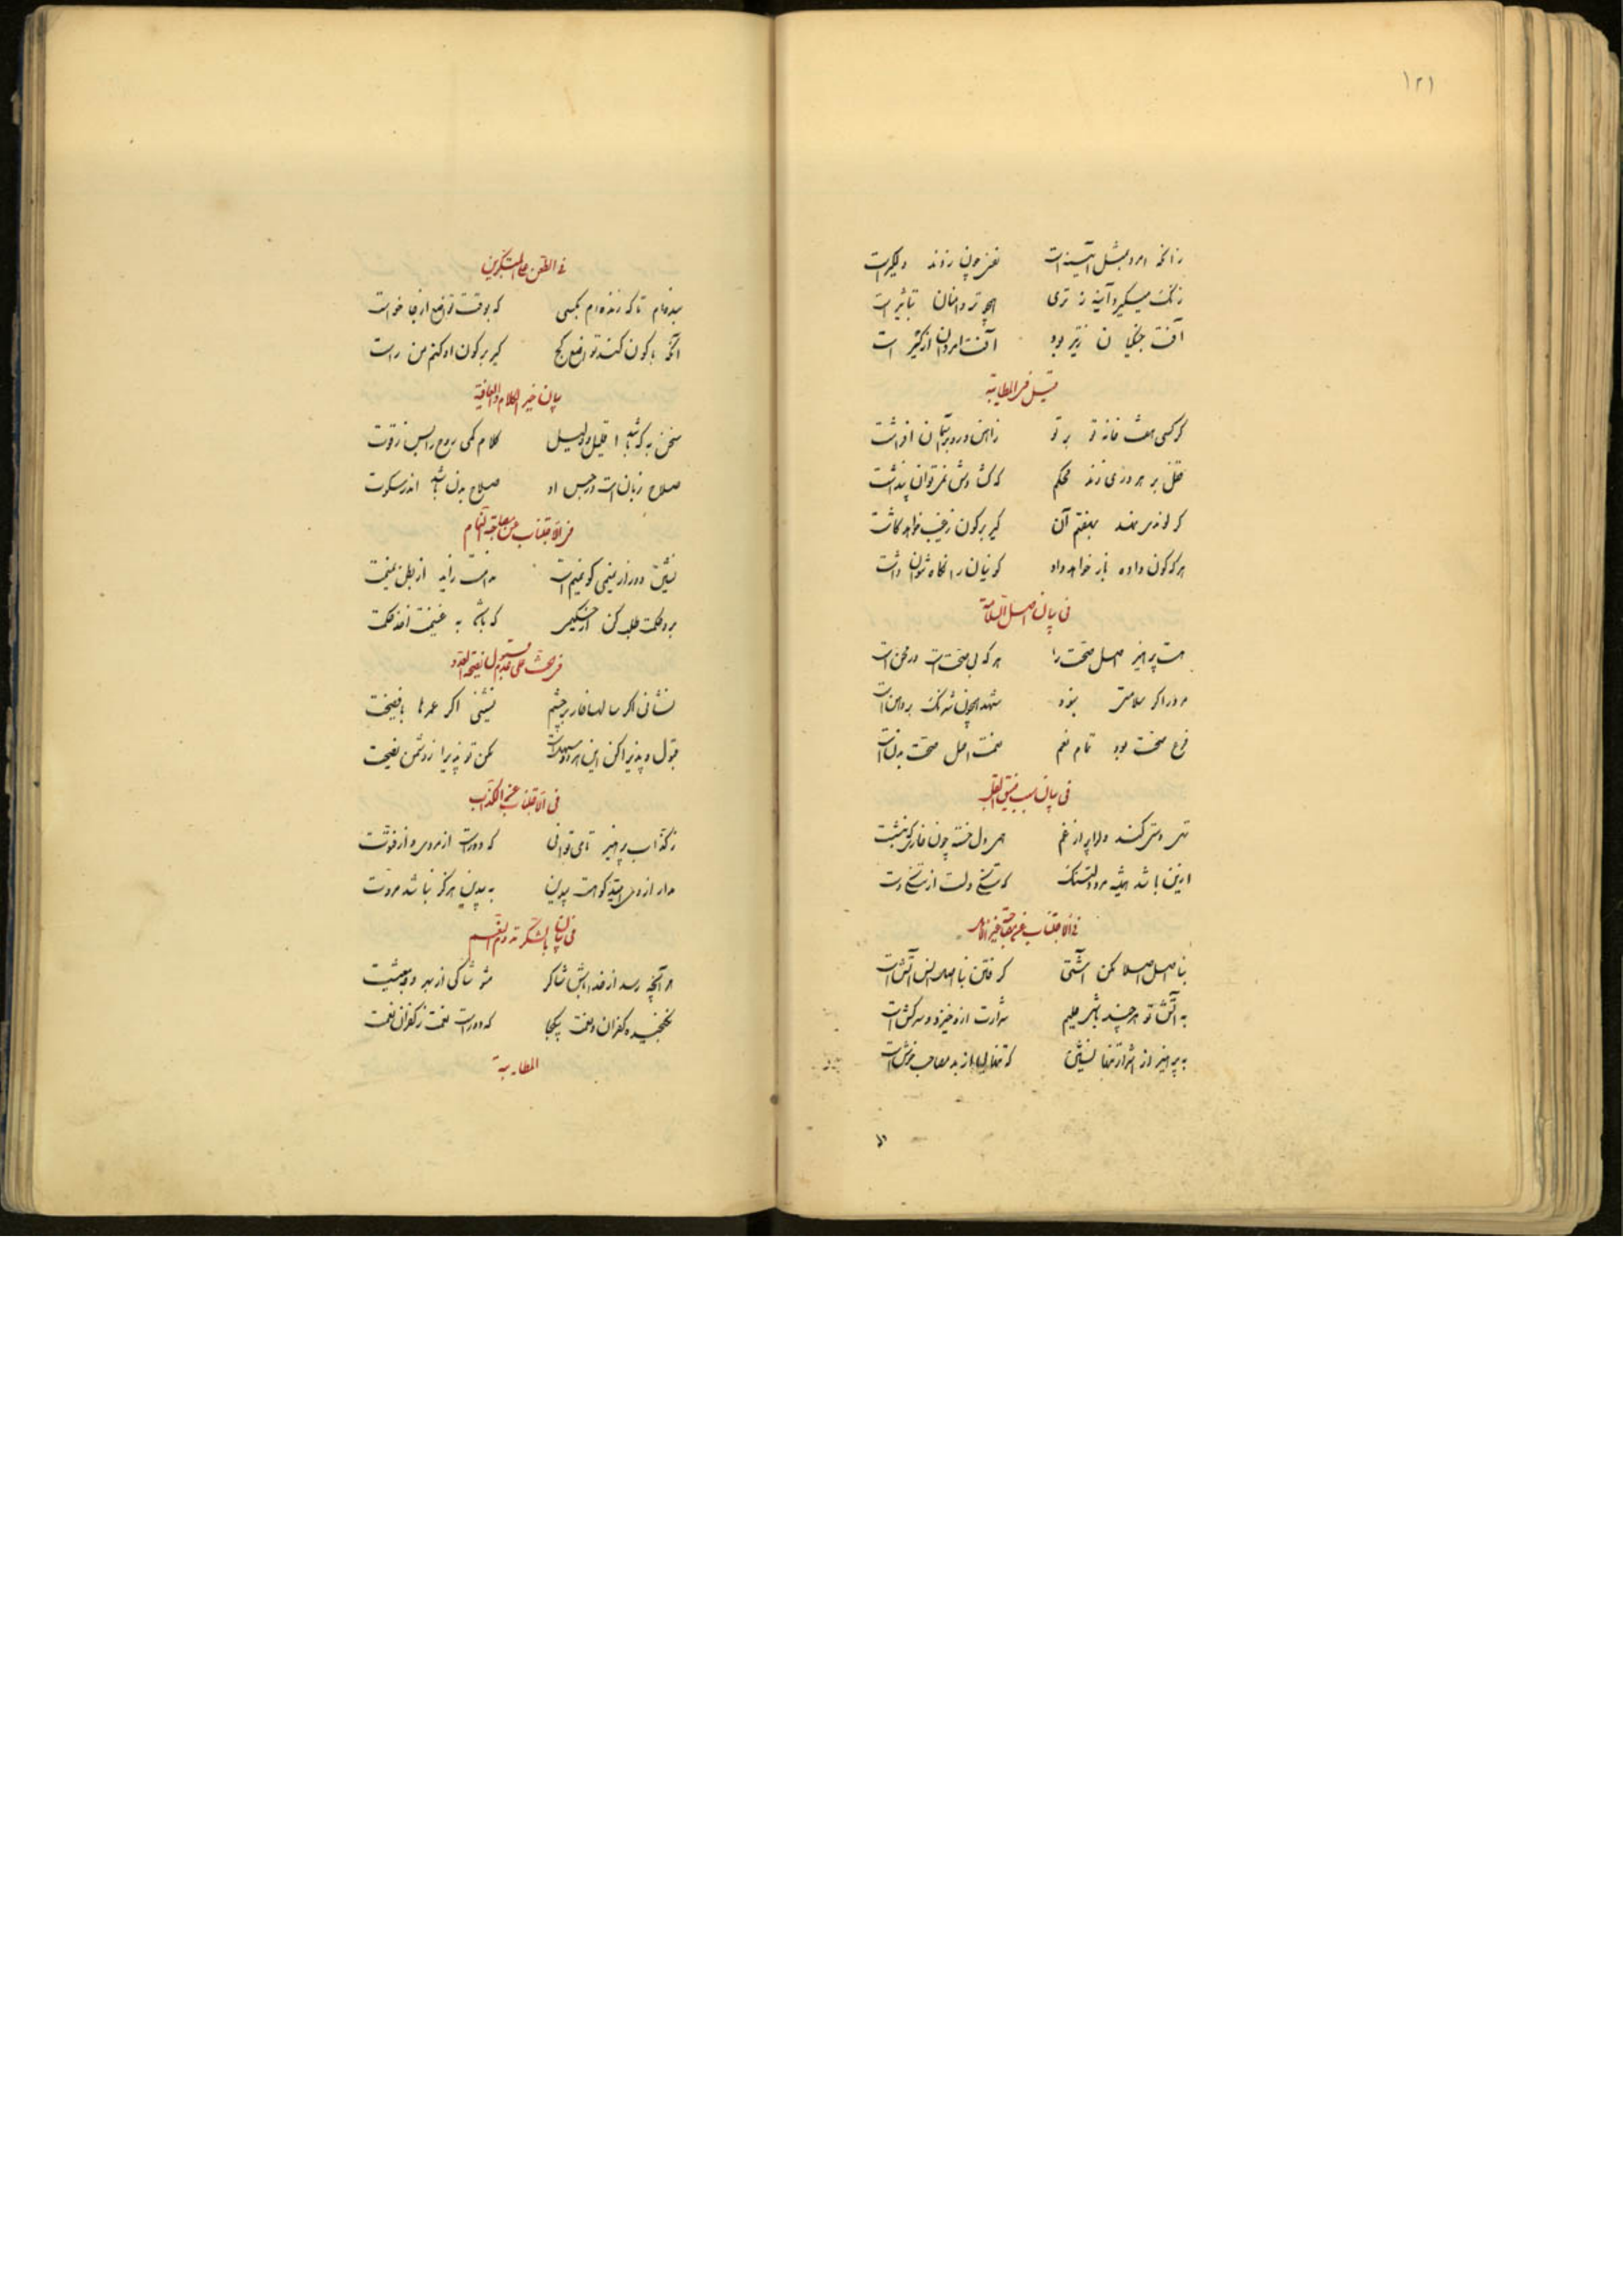 ۱۲۱
زانکه امرد بمثل آیینه است نفس چون زدند دلگیر است
زنگ میگیرد آینه ز تری همچو تر دامنان تباثیر است
آفت جنکیان ز تیر بود آفت امردان از کیر است
قیل فی المطایبة
کر کسی هفت خانه تو بر تو زاهن و رو بر آسمان افراشت
قفل بر هر دری زند محکم که کشادش نمی توان پنداشت
کر لوندی نهد بهفتم آن کیر بر کون ز غیب خواهد کاشت
هر که کون داده باز خواهد داد کونیان را نگاه نتوان داشت
فی بیان اصل السلامة
هست پرهیز اصل صحت را هر که بی صحت است در محن است
مرد را کر سلامتی نبود شهد همچون شرنک بر دهن است
فرع صحت بود تمام نعم صحت اصل صحت بدن است
فی بیان سبب ضیق القلب
تهی دستی کند دلرا پر از غم همی دل خسته چون خار
ازین باشد همیشه مرد دلتنک که تنگی دلست از تنگی دست
فی الاجتناب عن مصاحبة غیر الاهل
بنا اهل اصلا مکن آشتی که فتن نا اهل آتش است
به آتش تو هر چند باشی حلیم شرارت ازو خیزد و سرکش است
به پرهیز از اشرار تنها نشین که تنهایی از بد مصاحب خوش است
فی الطعن علی المتکبرین
بنده ام تا که زنده ام بکسی که بوقت تواضع از جا خواست
آنکه با کون کند تواضع کج کیر بر کون او کنم من راست
بیان خیر الکلام والعافیة
سخن به که باشد قلیل و دلیل کلام کمی روح را بس ز قوت
صلاح زبان است در حبس او صلاح بدن باشد اندر سکوت
فی الاجتناب عن مصاحبة النمام
نشین دور از نمیمی کو نمیم است ندامت زاید از بطن نمیمت
برو حکمت طلب کن از حکیم که باشد به غنیمت اخذ حکمت
فی حث علی عدم قبول نصیحة العدو
نشانی اکر سالها خار بر چشم نشینی اکر عمرها با فضیحت
قبول و پذیرا کن این هر دو سهل است مکن تو پذیرا ز دشمن نصیحت
فی الاجتناب عن الکذاب
ز کذاب پرهیز تا می توانی که دور است از مردمی و از فتوت
مدار از وی امید کو هست بیدین به بیدین هرکز نباشد مروت
فی بیان الشکر و ذم النقم
هر آنچه رسد از خدا باش شاکر مشو شاکی از مهر و معیشت
نکنجیده کفران و نعمت بیکجا که دور است نعمت ز کفران نعمت
المطایبة